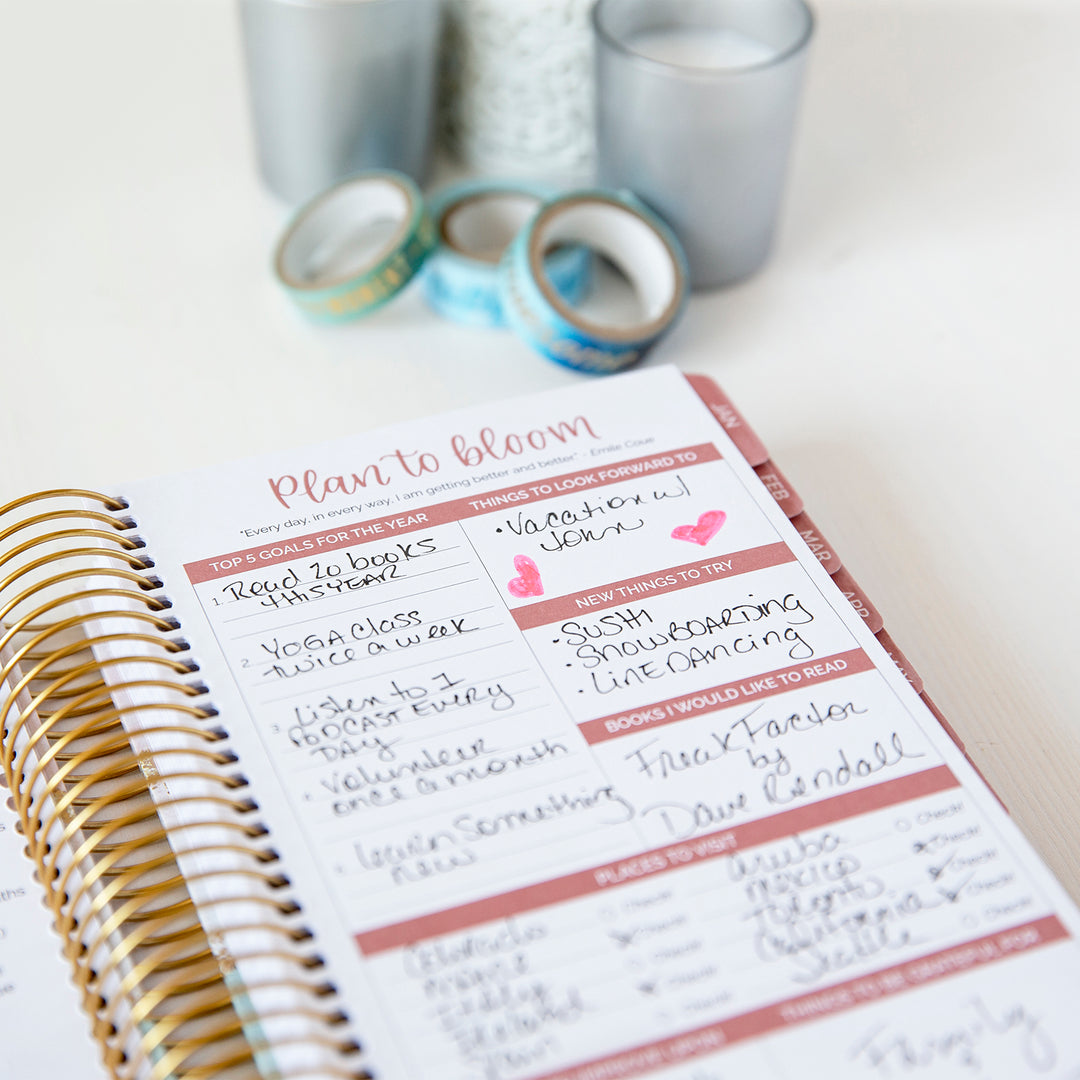 Plan to bloom
"Every day, in every way, I am getting better and better." - Emile Coue
TOP 5 GOALS FOR THE YEAR
1. Read 20 books
this YEAR
2. YOGA Class
twice a week
3. Listen to 1
PODCAST EVERY
DAY
Volunteer
once a month
Learn Something
new
THINGS TO LOOK FORWARD TO
• Vacation w/
John
NEW THINGS TO TRY
• SUSHI
• SNOWBOARDING
• LINE DANCING
BOOKS I WOULD LIKE TO READ
Freak Factor
by
Dave Rendall
PLACES TO VISIT
Colorado
Check!
Check!
Check!
Check!
Check!
Aruba
Mexico
Toronto
California
Seattle
Check!
Check!
Check!
Check!
Check!
UPON
THINGS TO BE GRATEFUL FOR
Family
JAN
FEB
MAR
APR